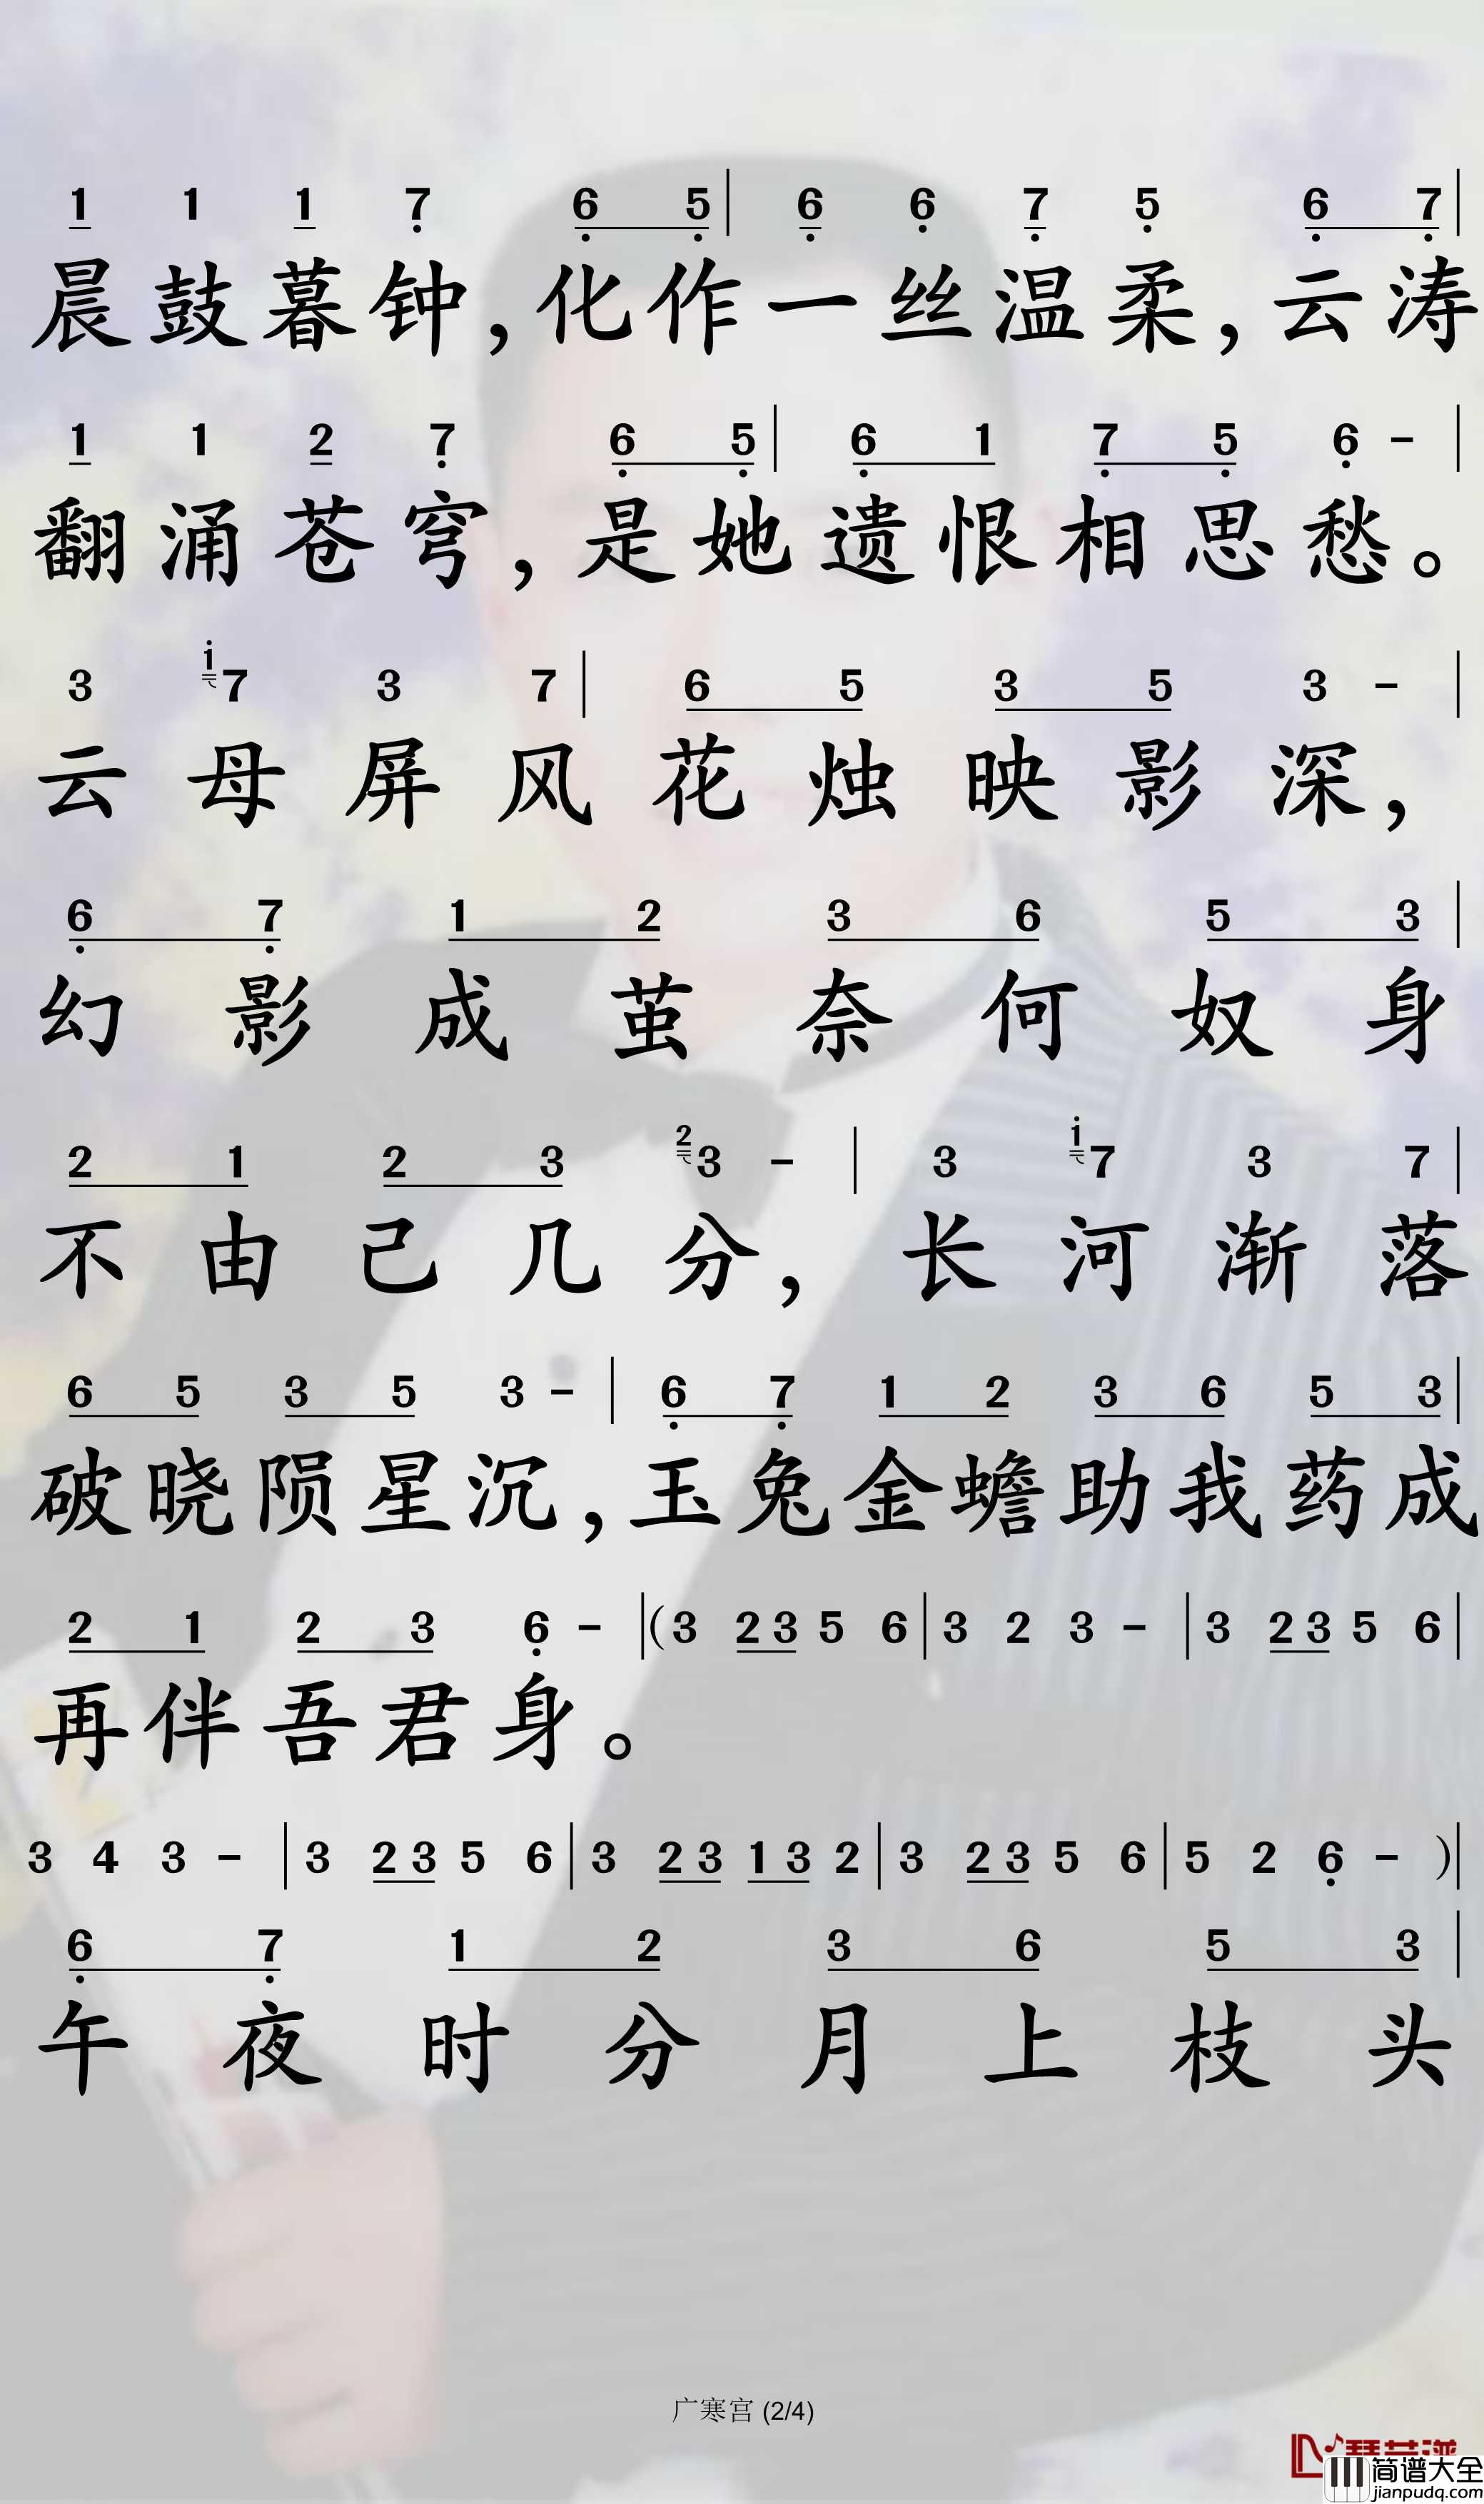 1 1 1 7 6 5 | 6 6 7 5 6 7 |
晨鼓暮钟，化作一丝温柔，云涛
1 1 2 7 6 5 | 6 1 7 5 6 - |
翻涌苍穹，是她遗恨相思愁。
3 i 7 3 7 | 6 5 3 5 3 - |
云母屏风花烛映影深，
6 7 1 2 3 6 5 3 |
幻影成茧奈何奴身
2 1 2 3 2 3 - | 3 i 7 3 7 |
不由己几分，长河渐落
6 5 3 5 3 - | 6 7 1 2 3 6 5 3 |
破晓陨星沉，玉兔金蟾助我药成
2 1 2 3 6 - | (3 2 3 5 6 | 3 2 3 - | 3 2 3 5 6 |
再伴吾君身。
3 4 3 - | 3 2 3 5 6 | 3 2 3 1 3 2 | 3 2 3 5 6 | 5 2 6 - ) |
6 7 1 2 3 6 5 3 |
午夜时分月上枝头
广寒宫 (2/4)
简谱大全
jianpudq.com